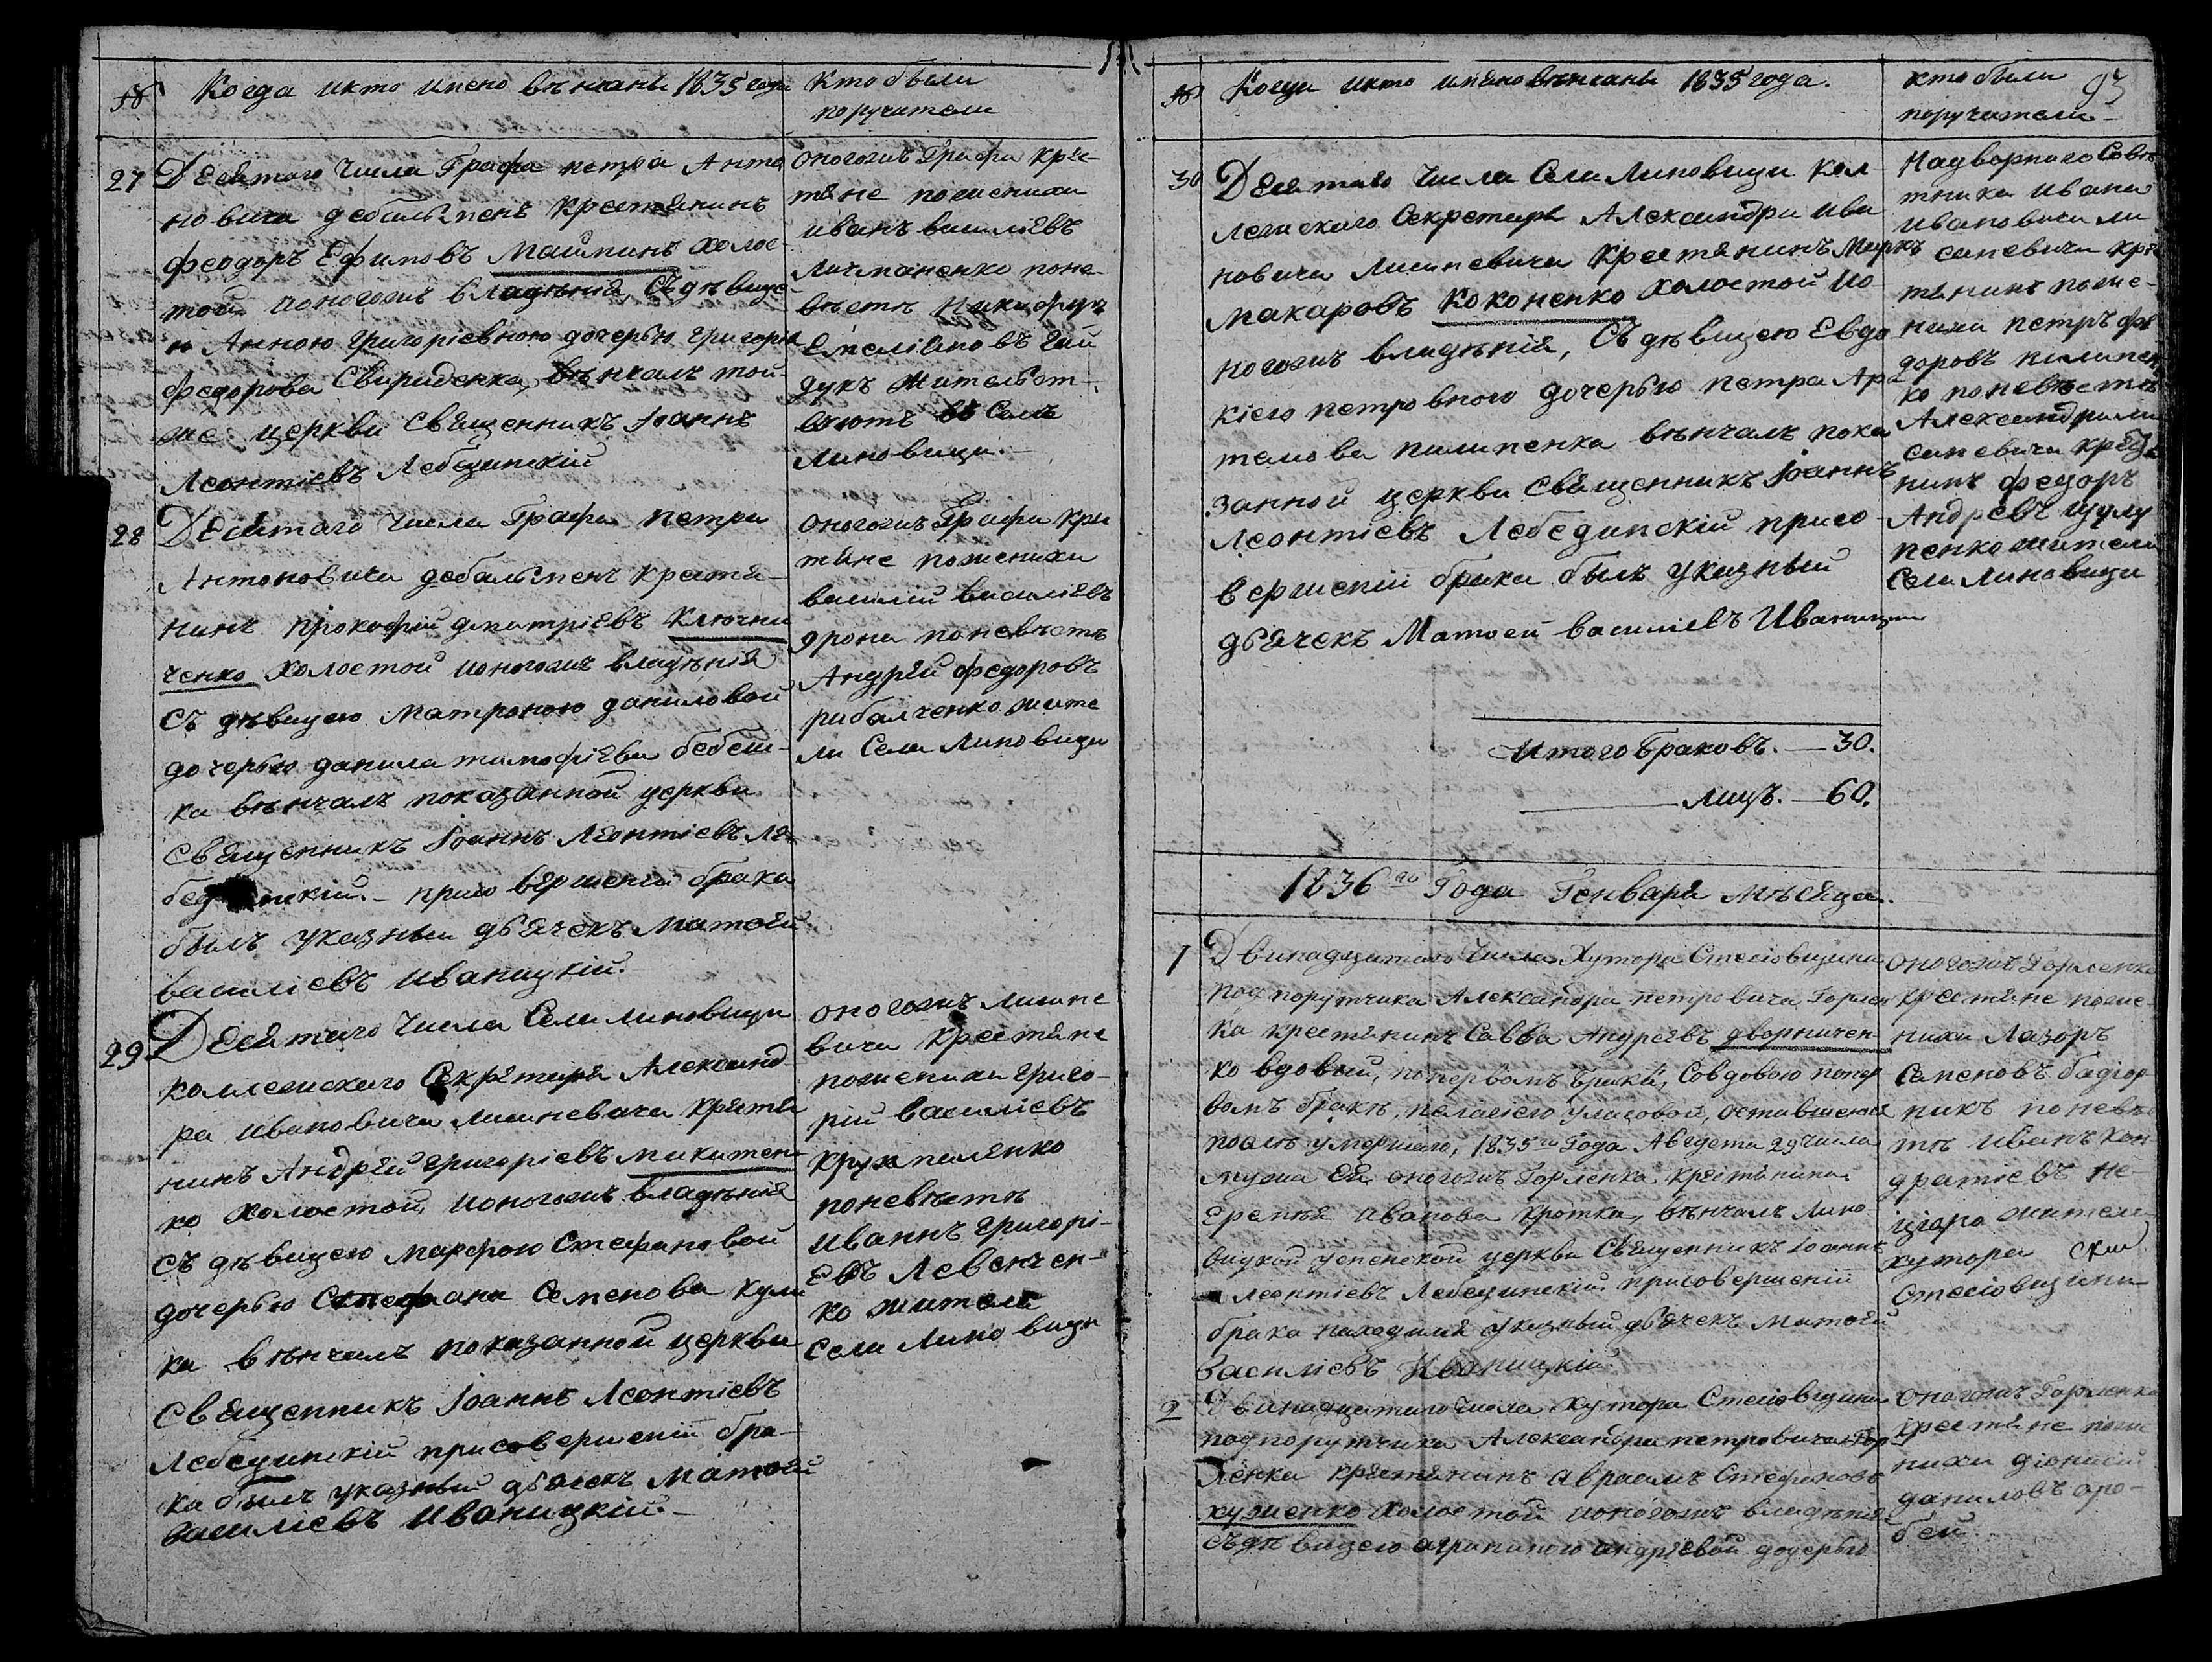 № Когда икто имено вѣнчаны 1835 года
Кто были
поручатели
27 Десятого Числа Графа петра Анто
новича дебальменъ Крестянинъ
феодоръ Ефимовъ Маимпинъ холос-
той ионогожъ владѣнія, Съдѣвице-
ю Анною григоріевною дочерью григорія
федорова Свириденка, вѣнчалъ той-
же церкви Священникъ Іоаннъ
Леонтіевъ Лебединскій
оногожъ Графа Крес-
тяне поженихи
иванъ василіевъ
поне-
вѣсте Никифоръ
Емеліановъ Гай
дукъ Жительст-
вуютъ въ Селѣ
Линовици.
28 Десятого Числа Графа петра
Антоновича дебальменъ Крестя-
нинъ прокофій дмитріевъ Ключни
ченко Холостой ионогожъ владѣнія
Съ дѣвицею Матроною даниловой
дочерью данила тимофіева бебеш-
ка вѣнчалъ показанной церкви
Священникъ Іоаннъ Леонтіевъ Ле
бединскій. - присо вершеніи брака
былъ указный дьячекъ Матѳей
василіевъ иваницкій.
оногожъ Графа Крес
тяне поженихи
василій василіевъ
дрона поневѣсте
Андрей федоровъ
рибалченко жите
ли Села Линовици
29 Десятого Числа Села линовици
коллежского Секретаря Александ-
ра ивановича лишневича крестя
нинъ Андрей григоріевъ микитен-
ко холостой, ионогожъ владѣнія
съ дѣвицею марфою Стефановой
дочерью Стефана Семенова кули
ка вѣнчалъ показанной церкви
Священникъ Іоаннъ Леонтіевъ
Лебединскій присовершеніи бра-
ка былъ указный дьячекъ Матѳей
василіевъ иваницкій.-
оногожъ лишне
вича крестяне
поженихи григо-
рій василіевъ
крухмаленко
поневѣсте
иваннъ григорі-
евъ Левчен-
ко жители
села Лино вици
№ Когда икто имяно вѣнчаны 1835 года.
кто были
поручатели
93
30 Десятаго Числа Села Линовици кол
лежского Секретаря Александра ива
новича Лишневича Крестянинъ Маркъ
макаровъ Коконенко холостой ио-
ногожъ владѣнія, Съ дѣвицею Евдо
кіею петровною дочерью петра Ар
темова пилипенка вѣнчалъ пока
занной церкви Священникъ Іоаннъ
Леонтіевъ Лебединскій присо-
вершеніи брака былъ указный
дьячекъ Матѳей василіевъ Иваницкій
Надворного Совѣ
тника ивана
ивановича ли
сеневича крѣ
тянинъ поже-
ниха петръ фе
доровъ пилипен
ко поневѣсте
Александра ли
сеневича крес
нинъ федоръ
Андреевъ
жители
села Линовици
Итого Браковъ. - 30.
лицъ. - 60.
1836го Года Генваря мѣсяца.
1 Двинадцатого Числа Хутора Стесіовщина
подпорутчика Александра петровича Горлен
ка крестянинъ Савва Андреевъ дворничен-
ко вдовый, попервомъ браке, Совдовою попер
вомъ бракѣ, пелагіею улаговой, оставшеюся
послѣ умершаго, 1835го Года Августа 29 числа
мужа Ея, оногожъ Горленка крестянина
Еремѣя иванова кротка, вѣнчалъ Лино
вицкой успенской церкви Священникъ Іоаннъ
Леонтіевъ Лебединскій. присовершеніи
брака находился указный дьячекъ Матѳей
Василіевъ Иваницкій.
оногожъ Горленка
крестяне поже-
нихи Лазоръ
Семеновъ
поневѣс
те иванъ кон-
дратіевъ не-
жители
хутора
Стесіовщини
2 Двинадцатого Числа Хутора Стесіовщини
подпорутчика Александра петровича Гор
ленка крестянинъ Авраамъ Стефановъ
хуженко холостой ионогожъ владѣнія
съдѣвицею агрипиною андріевой дочерью
оногожъ Горленка
крестяне поже
нихи діонисій
даниловъ оро-
бей.